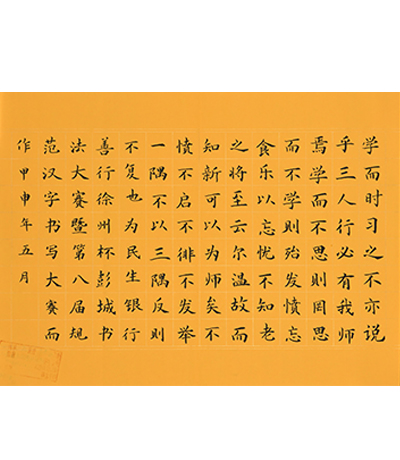 学而时习之不亦说
乎三人行必有我师
焉学而不思则罔思
而不学则殆发愤忘
食乐以忘忧不知老
之将至云尔温故而
知新可以为师矣不
愤不启不徘不发举
一隅不以三隅反则
不复也为民生银行
善行徐州杯彭城书
法大赛暨第八届规
范汉字书写大赛而
作甲申年五月